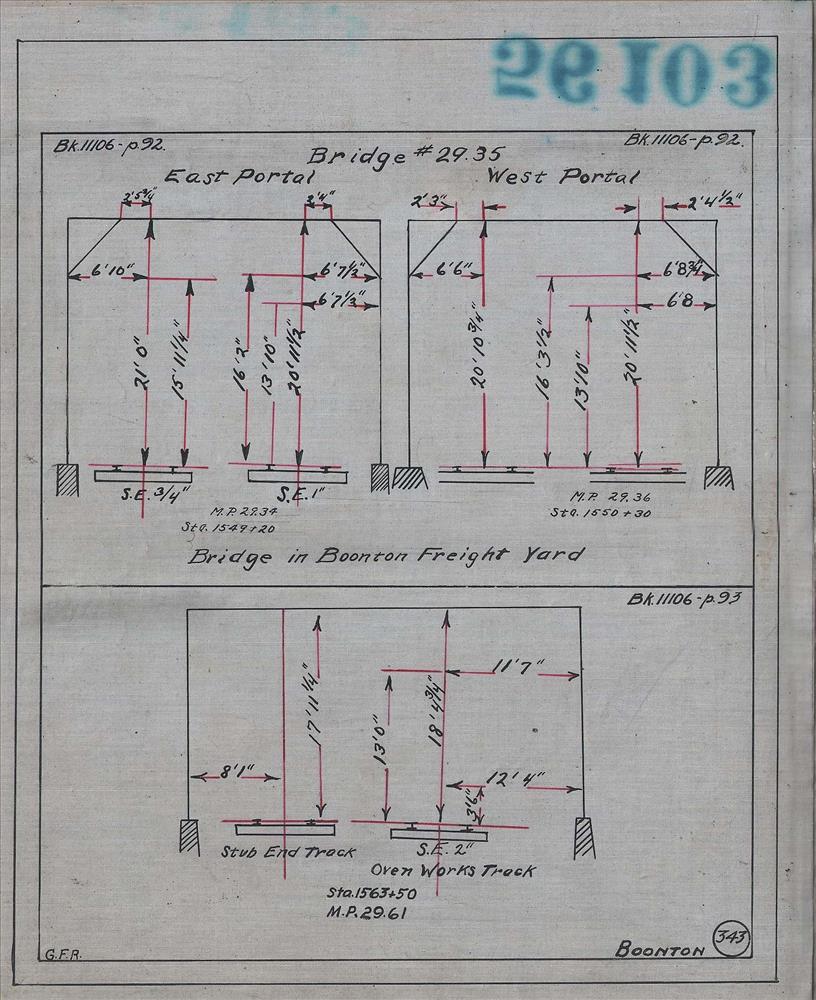 29103
Bk.11106-p.92.
Bk.11106-p.92.
Bridge #29.35
East Portal
West Portal
2'5¾"
2'4"
2'3"
2'4½"
6'10"
6'7½"
6'6"
6'8¾"
6'7½"
6'8
21'0"
15'11¼"
16'2"
13'10"
20'11½"
20'10¾"
16'3½"
13'10"
20'11½"
S.E. 3/4"
S.E. 1"
M.P. 29.34
Sta. 1549+20
M.P. 29.36
Sta. 1550+30
Bridge in Boonton Freight Yard
Bk.11106-p.93
11'7"
17'11¼"
13'0"
18'4¾"
8'1"
12'4"
3'6"
Stub End Track
S.E. 2"
Oven Works Track
Sta.1563+50
M.P.29.61
G.F.R.
Boonton
343